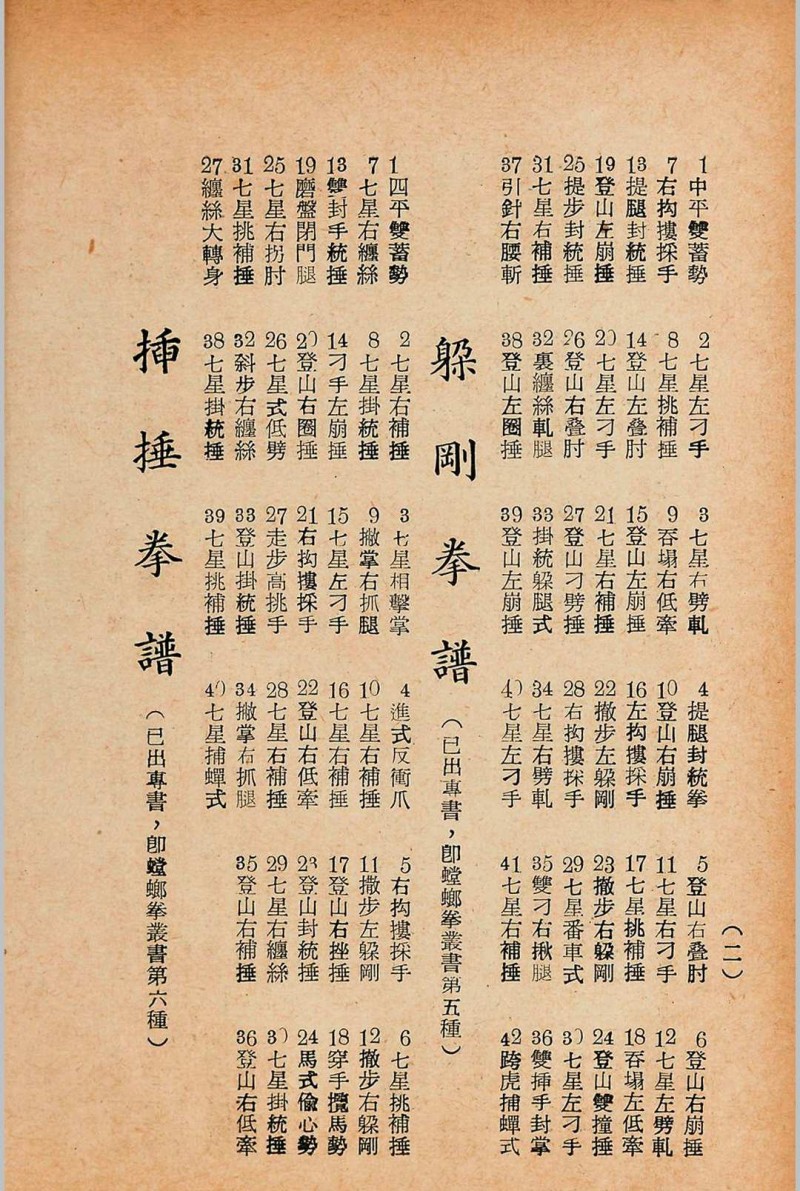 (二)
1中平雙蓄勢 2七星左刁手 3七星右劈軋 4提腿封統拳 5登山右叠肘 6登山右崩捶
7右抅摟採手 8七星挑補捶 9吞塌右低牽 10登山右崩捶 11七星右刁手 12七星左劈軋
13提腿封統捶 14登山左叠肘 15登山左崩捶 16左抅摟採手 17七星挑補捶 18吞塌左低牽
19登山左崩捶 20七星左刁手 21七星右補捶 22撤步左躲剛 23撤步右躲剛 24登山雙撞捶
25提步封統捶 26登山右叠肘 27登山刁劈捶 28右抅摟採手 29七星番車式 30七星左刁手
31七星右補捶 32裏纏絲軋腿 33掛統躲腿式 34七星右劈軋 35雙刁右揪腿 36雙揷手封掌
37引針右腰斬 38登山左圈捶 39登山左崩捶 40七星左刁手 41七星右補捶 42跨虎捕蟬式
躲剛拳譜(已出專書，卽螳螂拳叢書第五種)
1四平雙蓄勢 2七星右補捶 3七星相擊掌 4進式反衝爪 5右抅摟採手 6七星挑補捶
7七星右纏絲 8七星掛統捶 9撇掌右抓腿 10七星右補捶 11撤步左躲剛 12撤步右躲剛
13雙封手統捶 14刁手左崩捶 15七星左刁手 16七星右補捶 17登山右挫捶 18穿手攬馬勢
19磨盤閉門腿 20登山右圈捶 21右抅摟採手 22登山右低牽 23登山封統捶 24馬式偷心勢
25七星右拐肘 26七星式低劈 27走步高挑手 28七星右補捶 29七星右纏絲 30七星掛統捶
31七星挑補捶 32斜步右纏絲 33登山掛統捶 34撇掌右抓腿 35登山右補捶 36登山右低牽
27纏絲大轉身 38七星掛統捶 39七星挑補捶 40七星捕蟬式
揷捶拳譜(已出專書，卽螳螂拳叢書第六種)